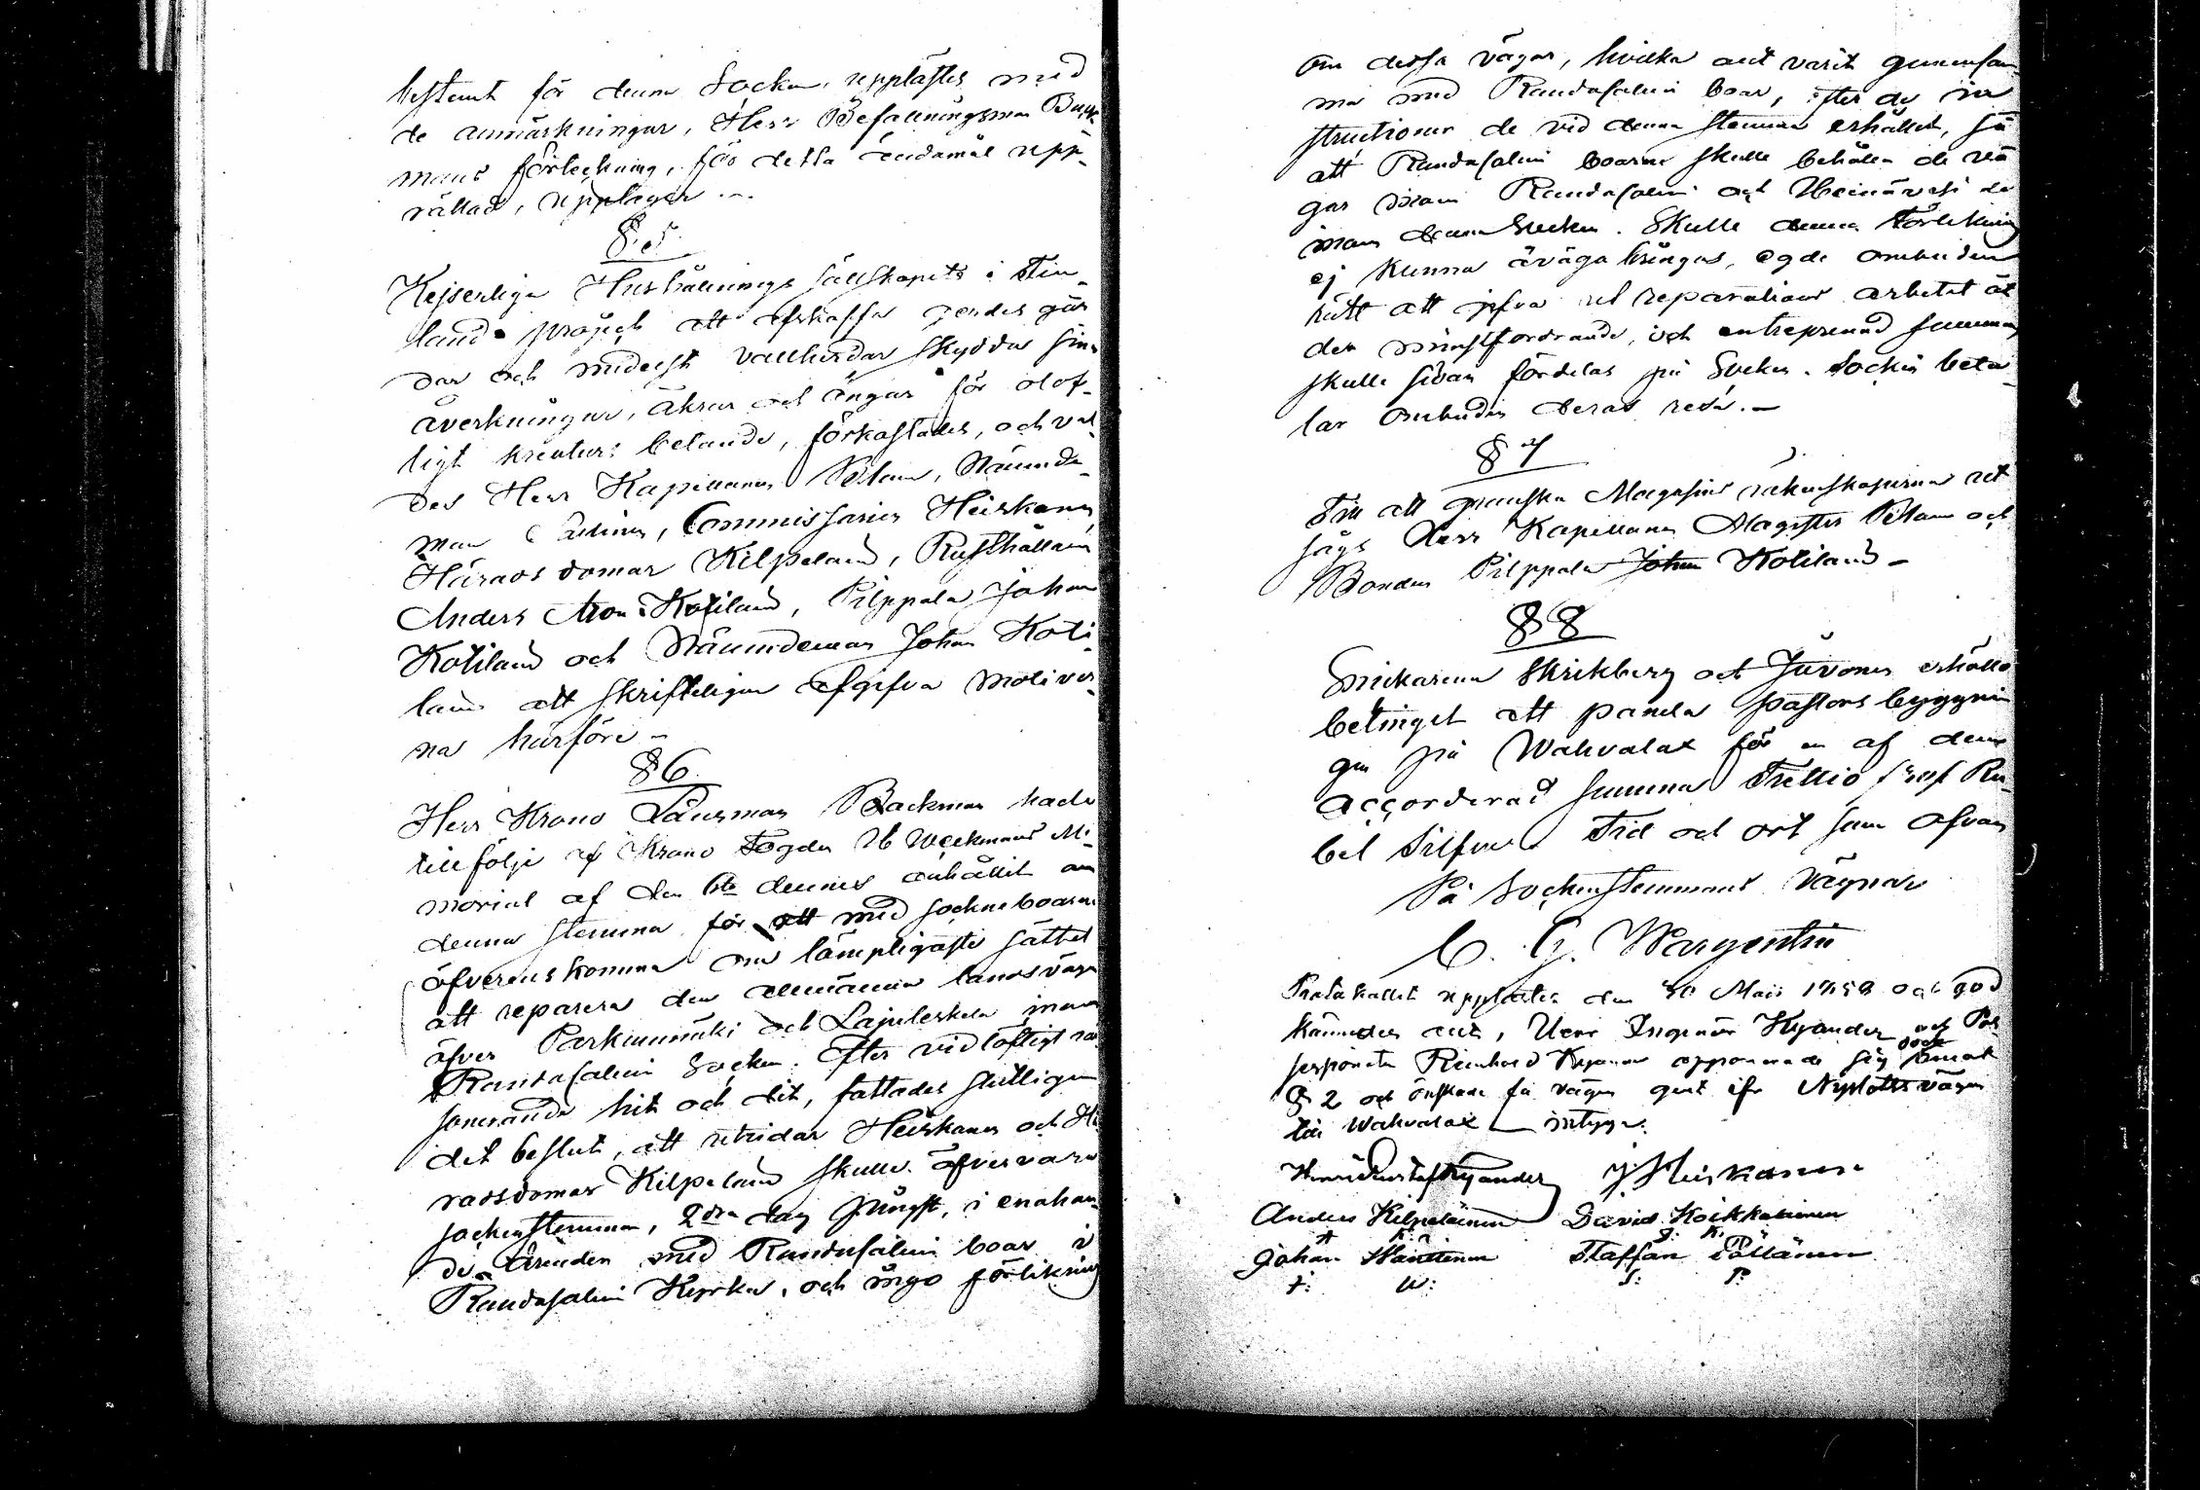 bestemt för denna Socken, upplästes med
de anmärkningar, Herr Befallningsman Back-
mans förteckning, för detta ändamål upp-
rättad, upptager ...
§ 5
Kejserliga Hushållnings Sällskapets i Fin-
lands projech att afskaffa gärdes går
dar och medelst vallherdar skydda
åverkningar, åkrar och ängar för olof-
ligt kreaturs betande, förkastades, och val-
des Herr Kapellanen, Nämnde-
man, Commissarien Heiskanen
Häradsdomar Kilpelain, Rusthållarn
Anders Aron Kotilain, Pilppala Johan
Kotilain och Nämndeman Johan Koti
lain att skrifteligen afgifva motiver-
na härföre -
§ 6
Herr Krono Länsman Backman hade
till följe af Krono Fogden Weckmans Me-
morial af den 6te dennes anhållit om
denna stemma för att med sockneboarna
öfverenskomma om lämpligaste sättet
att reparera den allmänna landsvägen
öfver Parkunmäki och Lajuleskela inom
Randasalmi Socken. Efter vidlöftigt re
sonerande hit och dit, fattades slutligen
det beslut, att Heiskanen och Hä
radsdomar Kilpelain skulle öfvervara
sockenstemman, 2dra dag Pingst, i enahan-
da ärenden med Randasalmi boar i
Randasalmi Kyrka, och ingå förlikning
om dessa vägar, hvilka allt varit gemensam-
ma med Randasalmi boar, efter de in
structioner de vid denna stemma erhållit, så
att Randasalmi boarne skulle behålla de vä
gar inom Randasalmi och Heinävesi de
inom denna Socken. Skulle denna förlikning
ej kunna åvägabringas, egde ombuden
rätt att gifva ut reparations arbetet åt
den minstfordrande, och entreprenad summan
skulle sedan fördelas på Socken. Socken beta
lar ombuden deras resa. -
§ 7
Till att granska Magasins räkenskaperna ut
sågs Herr Kapellanen Magister och
Bonden Pilppala Johan Kotilain -
§ 8
Snickarena Skrikberg och Juvonen erhöllo
betinget att panela Pastors byggnin
gen på Wahvalax för en af dem
accorderad summa Trettio Ru-
bel Silfver. Tid och ort som ofvan
På Sockenstemmans vägnar
C. G. Wargentin
Protokollet upplästes den 30 Maii 1858 och god
kändes allt, Herr Ingeniör Kyander och Pos
sessionaten Reinhard Kyander opponerade sig emot
§ 2 och önskade få vägen gent ifr Nyslotts vägen
till Wahvalax intyga.
Henric Gustaf Kyander J Heiskanen
Anders Kilpeläinen David Koikkalainen
A K. D. K.
Johan Hänninen Staffan Pöllänen
J: S: P: